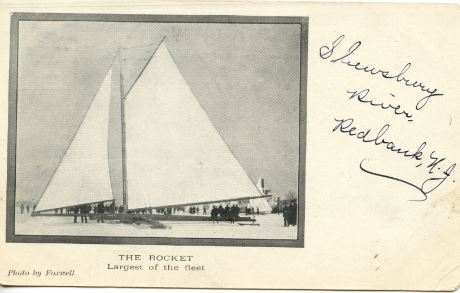 Shewsbury
River,
Redbank, N.J.
THE ROCKET
Largest of the fleet
Photo by Foxwell